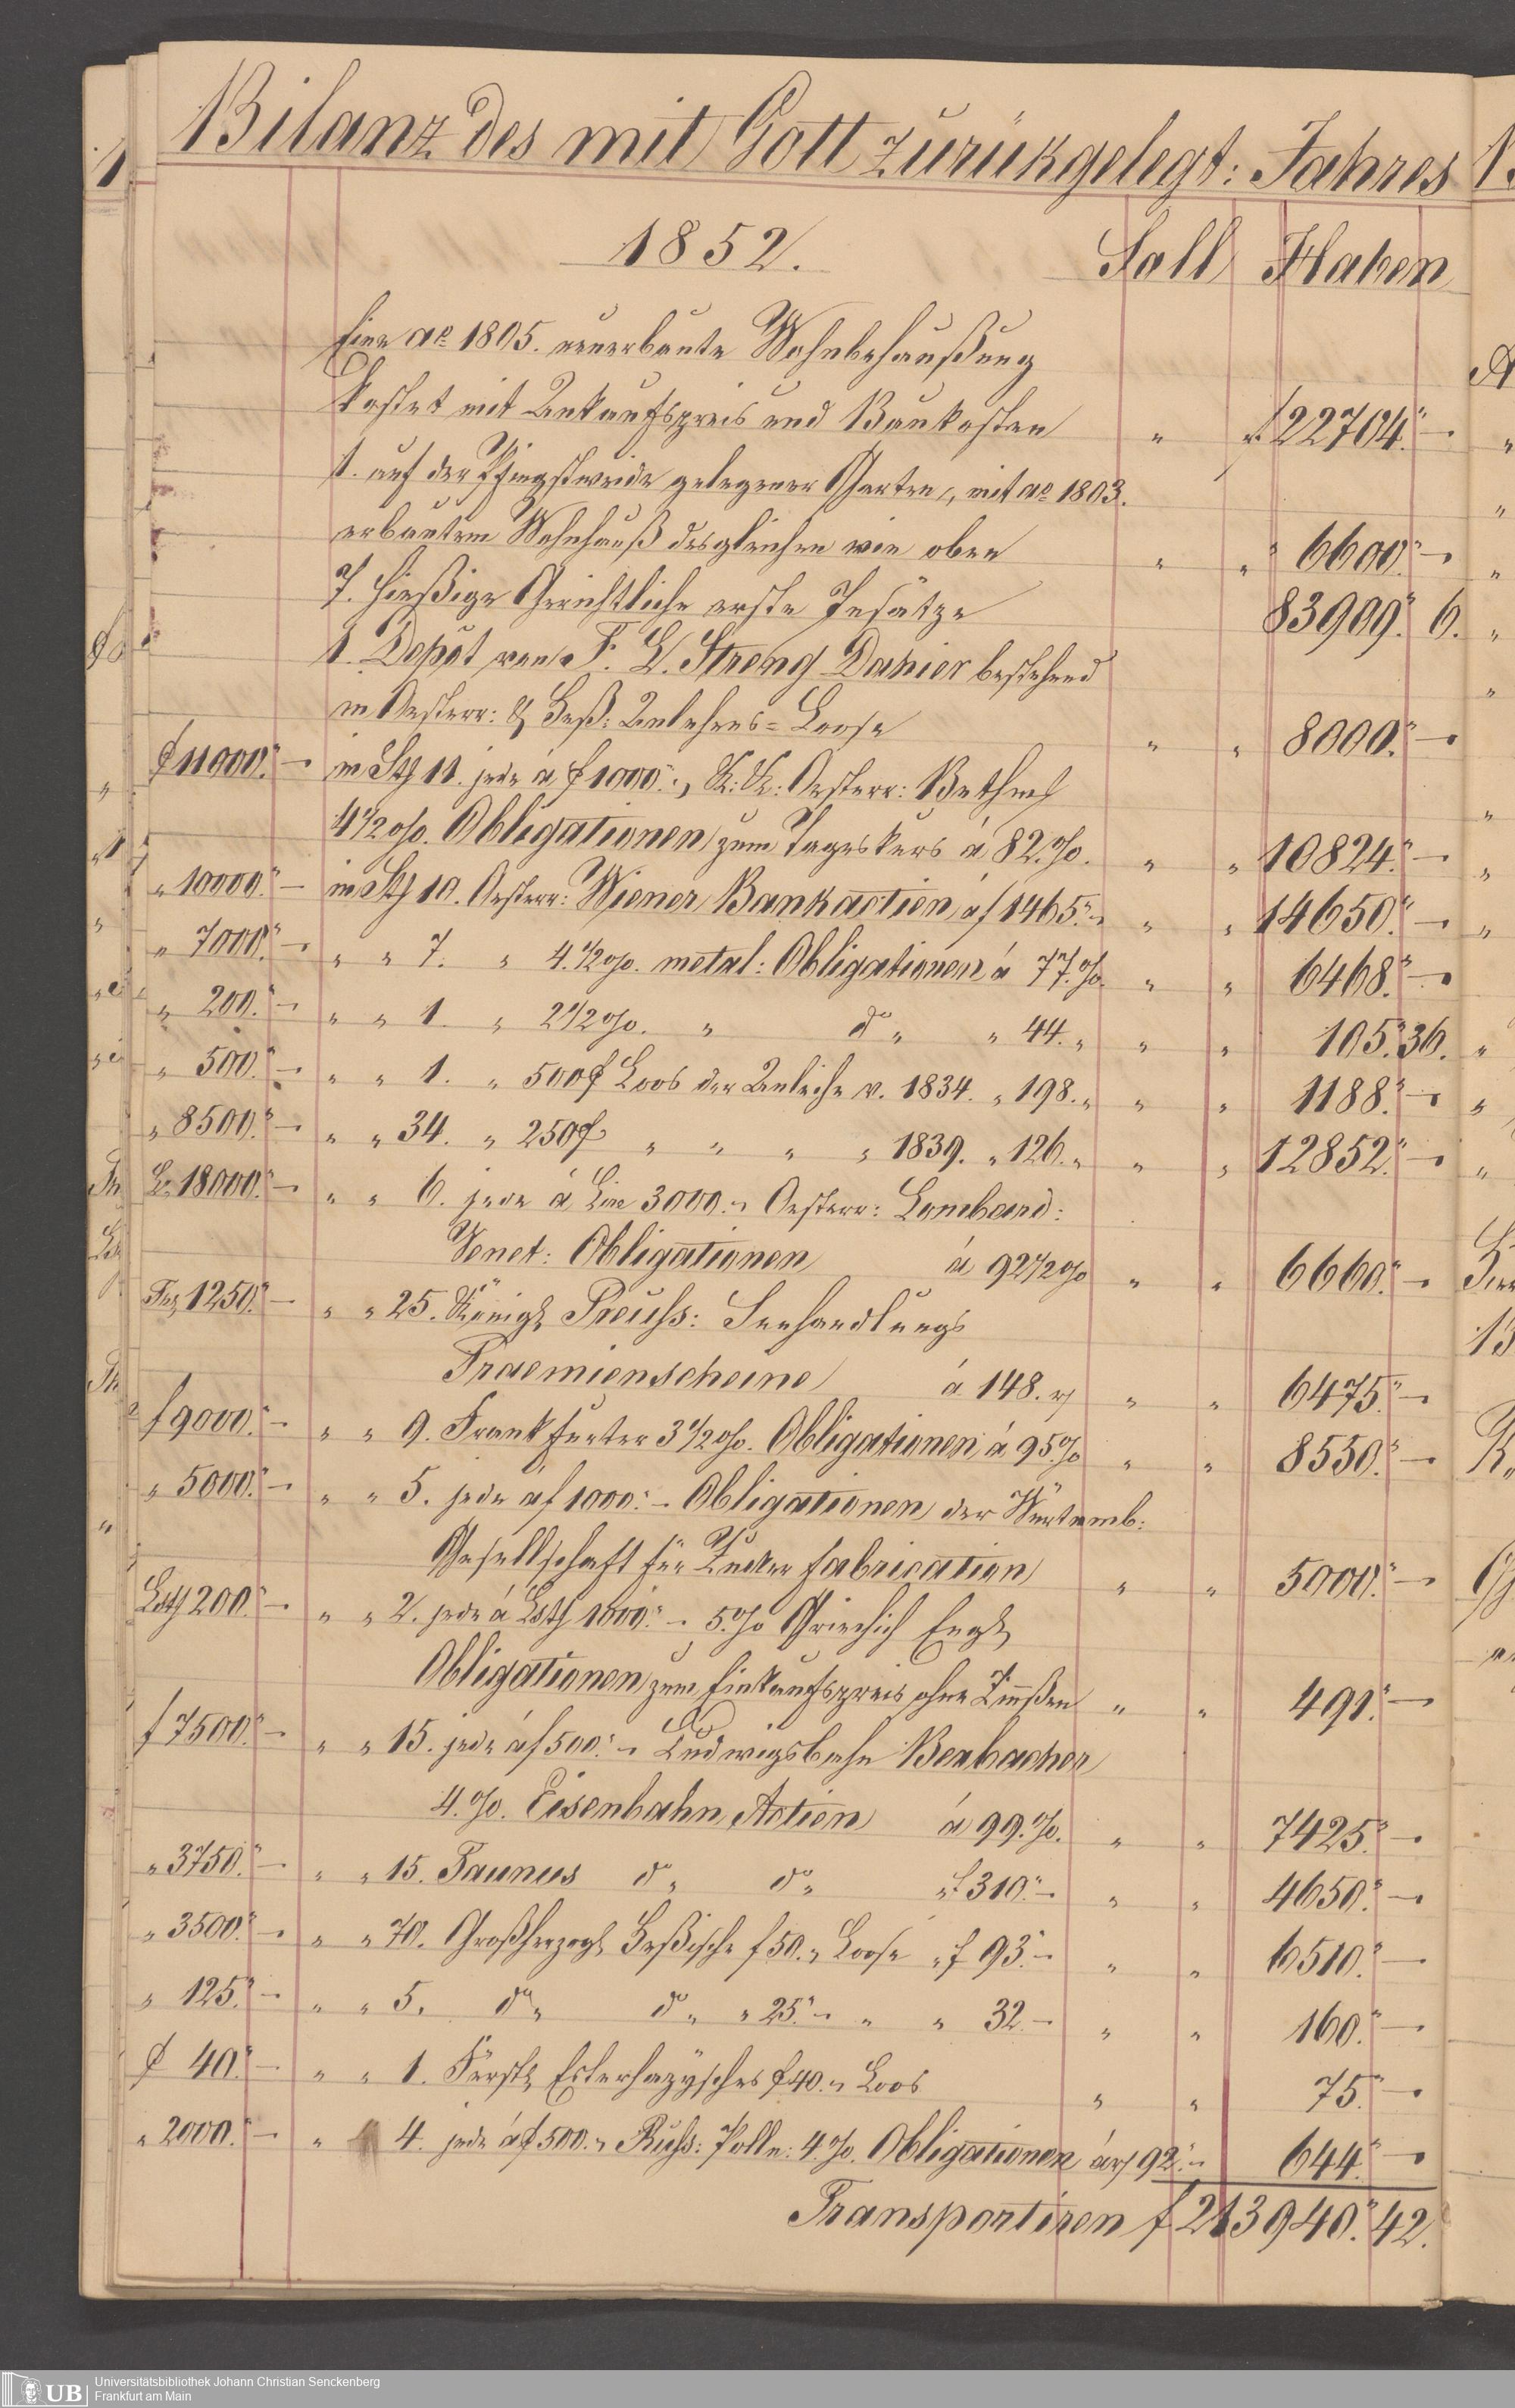 Bilanz des mit Gott zurükgelegt: Jahres
1852. Soll Haben
Eine ao 1805. neuerbaute Wohnbehaußung
kostet mit Ankaufspreis und Baukosten " f 22704." —
1. auf der Pfingstweide gelegener Garten, mit ao 1803.
erbautem Wohnhauß desgleichen wie oben " " " 6600." —
7. hießige Gerichtliche erste Insätze 83909." 6.
1. Depot von F. L. Streng Danier bestehend
in Oesterr: & Heß: Anlehens=Loose " " 8000." —
f 11000." — in Stk 11. jede á f 1000.", K: K: Oesterr: Bethm
4 1/2 0/0. Obligationen zum Tageskurs á 82. 0/0. " " 10824." —
" 10000." — in Stk 10. Oesterr: Wiener Bankactien á f 1465." — " " 14650." —
" 7000." — " " 7. " 4. 1/2 0/0. metal: Obligationen á 77. 0/0. " " 6468." —
" 200." — " " 1. " 2 1/2 0/0. " do " " 44. " " " 105." 36.
" 500." — " " 1. " 500 f Loos der Anleihe v. 1834. " 198. " " " 1188." —
" 8500." — " " 34. " 250 f " " " " 1839. " 126. " " " 12852." —
L: 18000." — " " 6. jede á Lire 3000. " Oesterr: Lombard:
Venet: Obligationen á 92 1/2 0/0 " " 6660." —
1250." — " " 25. Königl Preuſs: Seehandlungs
Praemienscheine á 148. " " 6475." —
f 9000." — " " 9. Frankfurter 3 1/2 0/0. Obligationen á 95 0/0 " " 8550." —
" 5000." — " " 5. jede á f 1000." — Obligationen der Würtemb:
Gesellschaft für Zucker fabrication " " 5000." —
Lstl 200." — " " 2. jede á Lstl 1000." — 5. 0/0 Griechisch Engl
Obligationen zum Einkaufspreis ohne Zinnßen " " 491." —
f 7500." — " " 15. jede á f 500." — Ludwigsbahn Bexbacher
4. 0/0. Eisenbahn Actien á 99. 0/0. " " 7425." —
" 3750." — " " 15. Taunus do " do " " f 310." — " " 4650." —
" 3500." — " " 70. Großherzogl Heßische f 50. " Loose " f 93." — " " 6510." —
" 125." — " " 5. do " do " " 25." — " " 32. — " " 160." —
f 40." — " " 1. Fürstl Esterhazysches f 40. " Loos " " 75." —
" 2000." — " 4. jede á f 500. " Ruſs: Polln: 4. 0/0. Obligationen á 92." — 644." —
Transportiren f 213940." 42.
UB Universitätsbibliothek Johann Christian Senckenberg
Frankfurt am Main